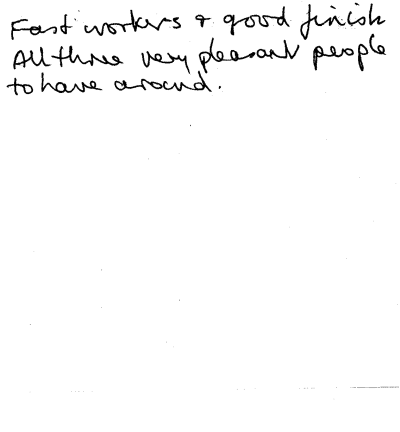 Fast workers & good finish
All three very pleasant people
to have around.